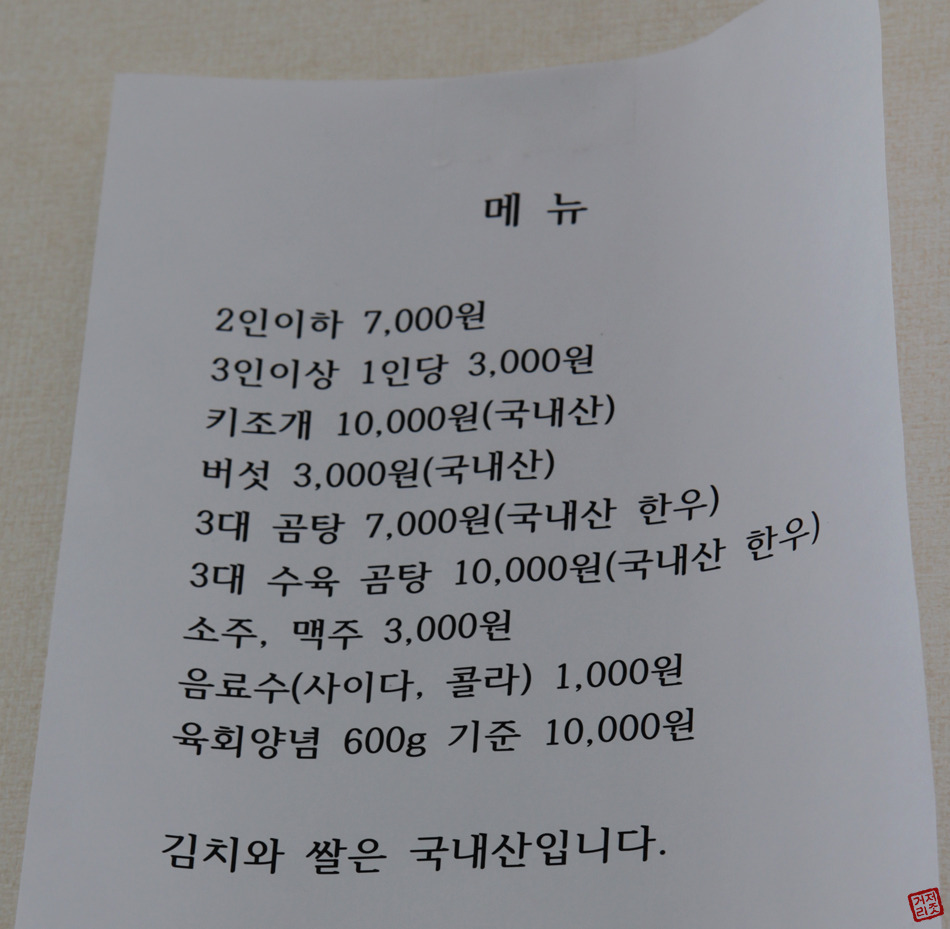 메 뉴
2인이하 7,000원
3인이상 1인당 3,000원
키조개 10,000원(국내산)
버섯 3,000원(국내산)
3대 곰탕 7,000원(국내산 한우)
3대 수육 곰탕 10,000원(국내산 한우)
소주, 맥주 3,000원
음료수(사이다, 콜라) 1,000원
육회양념 600g 기준 10,000원
김치와 쌀은 국내산입니다.